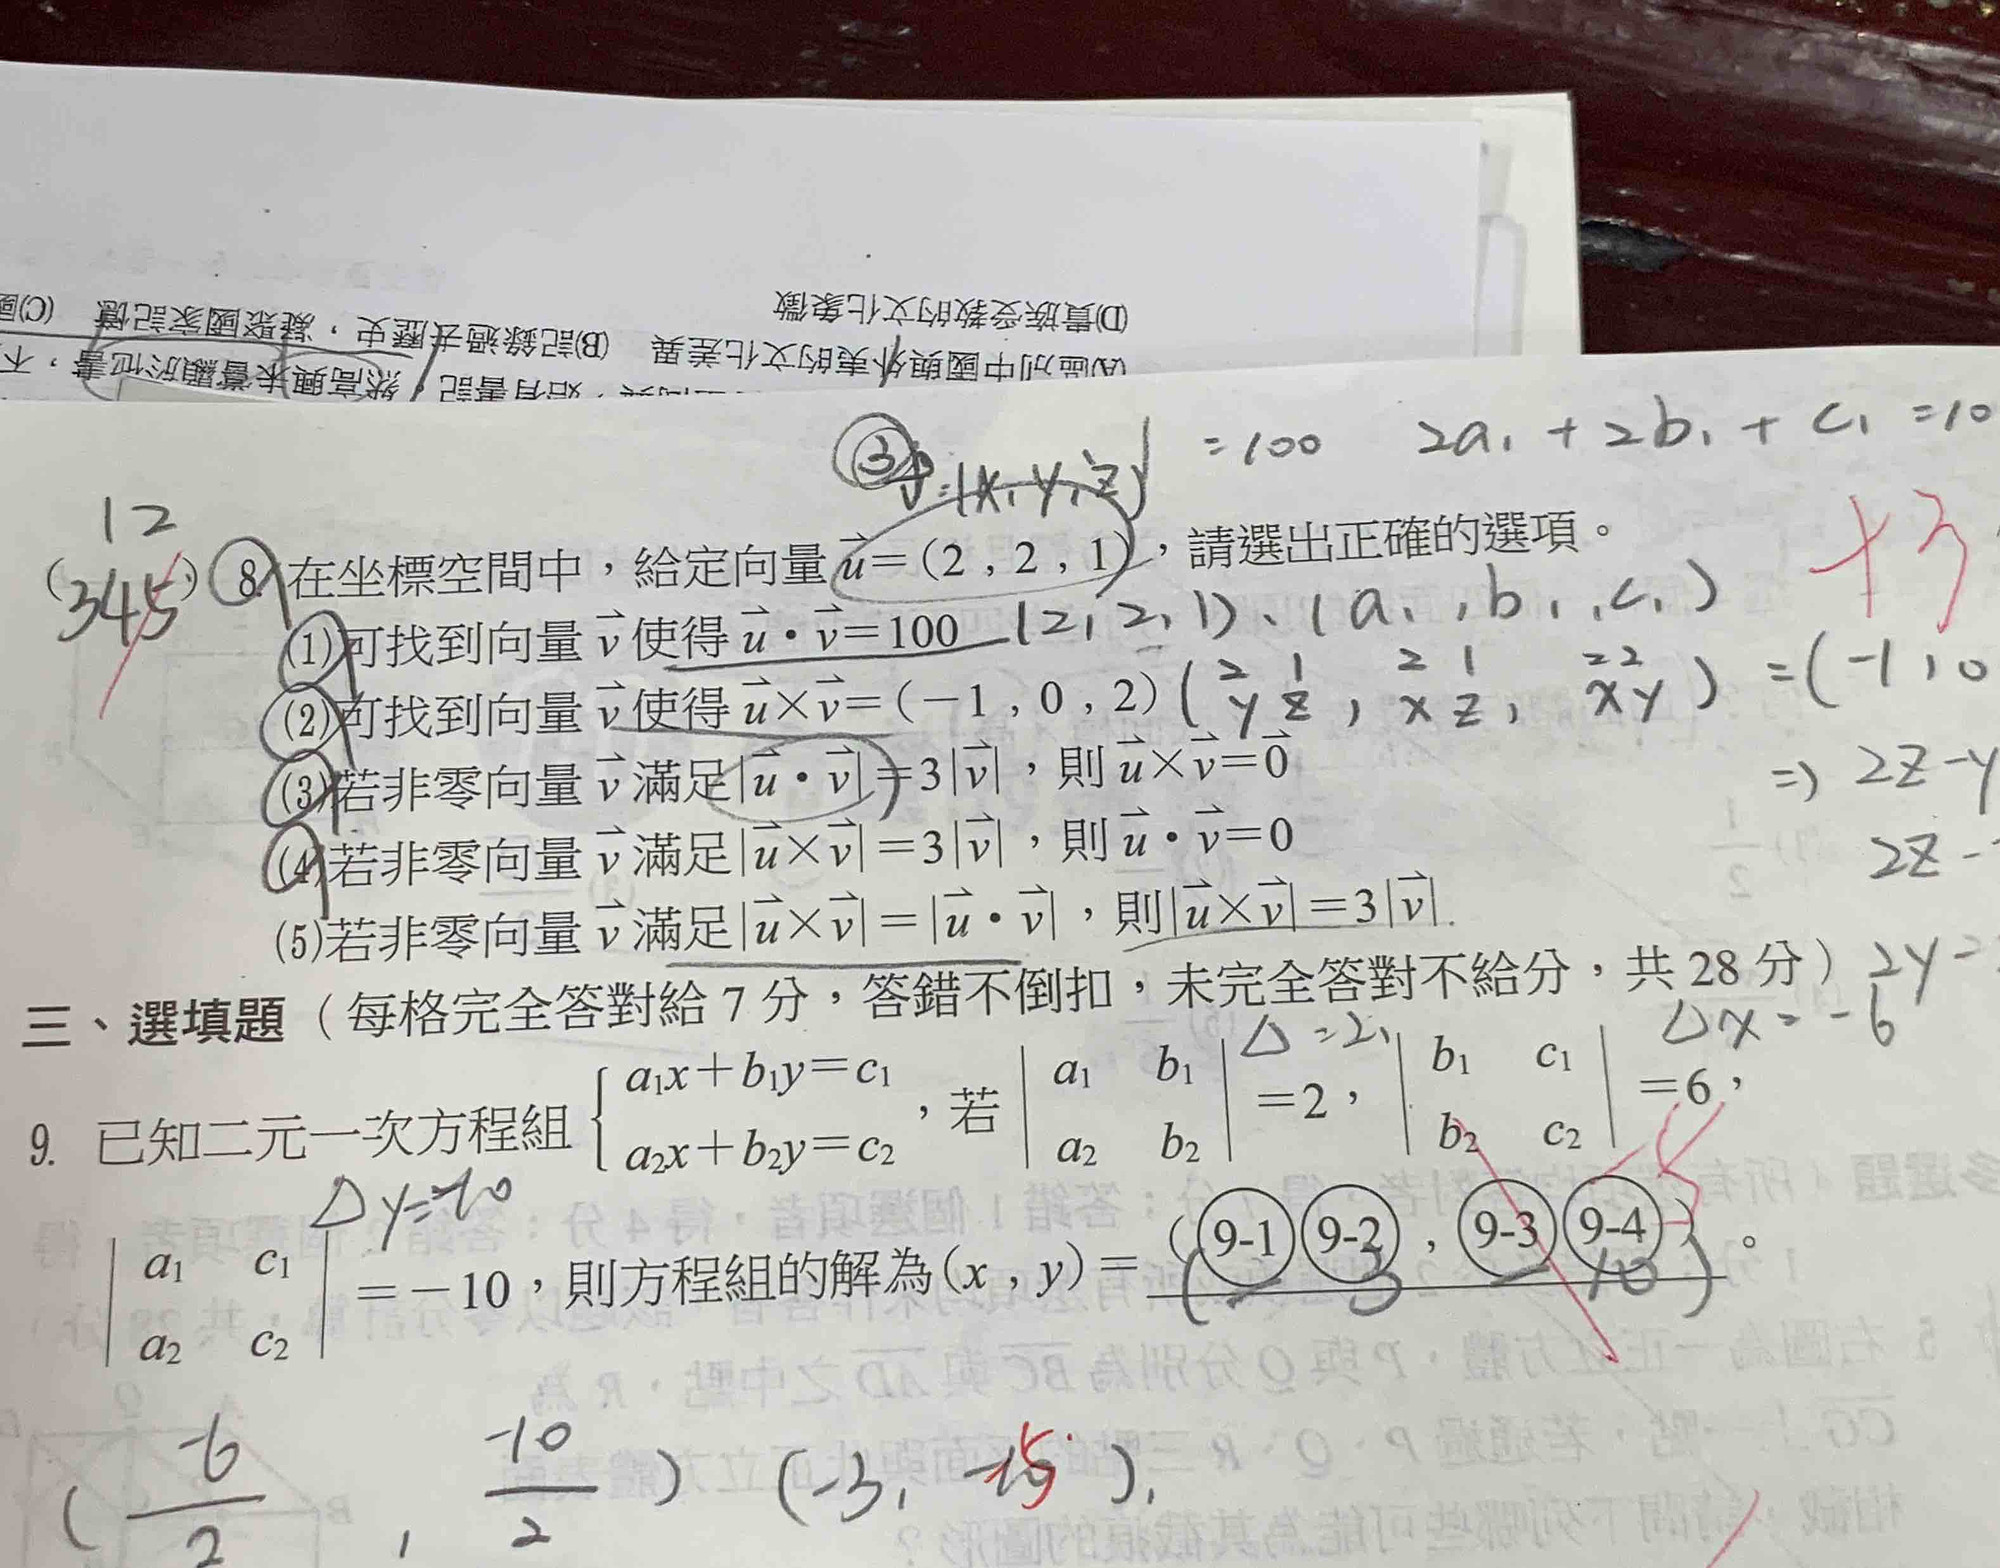 (D)貴族受教的文化象徵
(A)區別中國與外夷的文化差異 (B)記錄過去歷史，凝聚國家記憶 (C)國
，始有書記，然高興未嘗顯於他書，不
③
=(x, y, z)
=100 2a₁+2b₁+c₁=10
12
(345) 8. 在坐標空間中，給定向量 u⃗=(2 , 2 , 1)，請選出正確的選項。
+3
(1)可找到向量 v⃗ 使得 u⃗・v⃗=100 (2, 2, 1)、(a₁, b₁, c₁)
(2)可找到向量 v⃗ 使得 u⃗×v⃗=(−1 , 0 , 2) (2 1 y z, 2 1 x z, 2 2 x y) =(-1, 0
(3)若非零向量 v⃗ 滿足|u⃗・v⃗|=3|v⃗|，則 u⃗×v⃗=0⃗
=> 2z-y
(4)若非零向量 v⃗ 滿足|u⃗×v⃗|=3|v⃗|，則 u⃗・v⃗=0
2z-
(5)若非零向量 v⃗ 滿足|u⃗×v⃗|=|u⃗・v⃗|，則|u⃗×v⃗|=3|v⃗|.
2y=
三、選填題（每格完全答對給 7 分，答錯不倒扣，未完全答對不給分，共 28 分）
Δ=2, Δx=-6
9. 已知二元一次方程組 { a₁x+b₁y=c₁ a₂x+b₂y=c₂ ，若 | a₁ b₁ a₂ b₂ | =2， | b₁ c₁ b₂ c₂ | =6，
Δy=-10
| a₁ c₁ a₂ c₂ | =−10，則方程組的解為(x , y)= (9-1 9-2 , 9-3 9-4)。
(- 3 - 10)
-5
(-6/2, -10/2) (-3, -5),